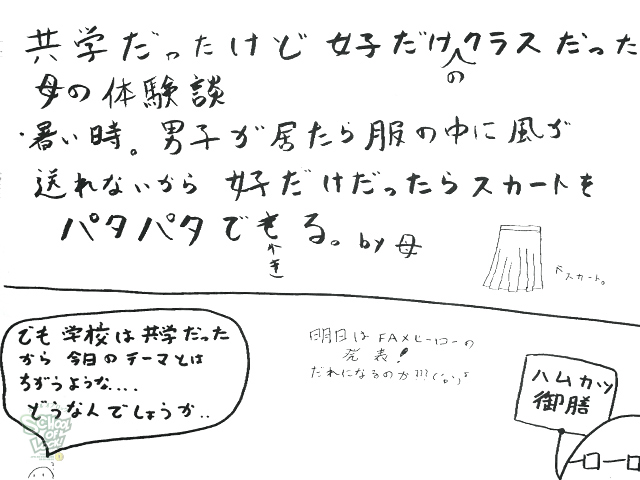 共学だったけど 女子だけのクラスだった
母の体験談
・暑い時。男子が居たら服の中に風が
送れないから 女子だけだったらスカートを
パタパタできる。by母
スカート。
でも 学校は共学だった
から 今日のテーマとは
ちがうような....
どうなんでしょうか..
明日はFAXヒーローの
発表!
だれになるのか???
ハムカツ
御膳
SCHOOL
OF
LOCK!